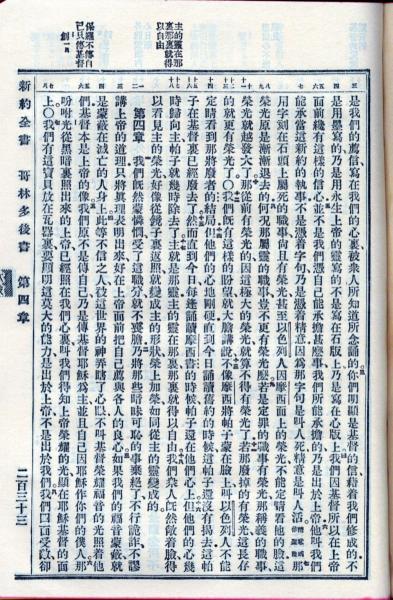 主的靈在那裏那裏就得以自由
保羅不傳自己只傳基督
是我們的薦信寫在我們的心裏被衆人所知道所念誦的你們明顯是基督的信藉着我們修成的不
是用墨寫的乃是用永生上帝的靈寫的不是寫在石版上乃是寫在心版上我們因基督所以在上帝
面前纔有這樣的信心並不是我們憑自己能承擔甚麽事我們所能承擔的乃是出於上帝他叫我們
能承當這新約的執事不是憑着字句乃是憑着精意因爲那字句是叫人死精意是叫人活
用字刻在石頭上屬死的職事尚且有榮光甚至以色列人因摩西面上的榮光不能定睛看他的臉這
榮光原是漸漸退去的何况那屬靈的職事豈不更有榮光麽若是定罪的職事有榮光那稱義的職事
榮光就越發大了那從前有榮光的因這極大的榮光就算不得有榮光了若那廢掉的有榮光這長存
的就更有榮光了○我們旣有這樣的盼望就大膽講說不像摩西將帕子蒙在臉上叫以色列人不能
定睛看到那將廢者的結局但他們的心地剛硬直到今日誦讀舊約的時候這帕子還沒有揭去這帕
子在基督裏已經廢去了然而直到今日每逢誦讀摩西書的時候帕子還在他們心上但他們的心幾
時歸向主帕子就幾時除去了主就是那靈主的靈在那裏那裏就得以自由我們衆人旣然敞着臉得
以看見主的榮光好像從鏡子裏返照就變成主的形狀榮上加榮如同從主的靈變成的
第四章 我們旣然蒙憐憫受了這職分就不喪膽乃將那些暗昧可恥的事棄絕了不行詭詐不謬
講上帝的道理只將眞理表明出來好在上帝面前把自己薦與各人的良心如果我們的福音蒙蔽就
是蒙蔽在滅亡的人身上此等不信之人被這世界的神弄瞎了心眼不叫基督榮耀福音的光照着他
們基督本是上帝的像我們原不是傳自己乃是傳基督耶穌爲主並且自己因耶穌作你們的僕人那
吩咐光從黑暗裏照出來的上帝已經照在我們心裏叫我們得知上帝榮耀的光顯在耶穌基督的面
上○我們有這寶貝放在瓦器裏要顯明這莫大的能力是出於上帝不是出於我們我們四面受敵卻
新約全書 哥林多後書 第四章 二百三十三